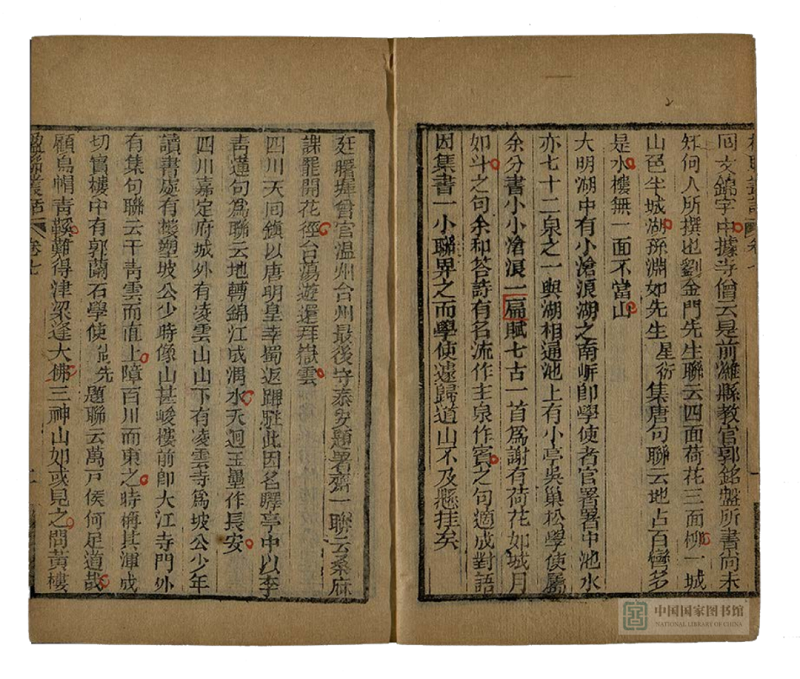 楹聯叢話 卷七
回文錦字中據寺僧云是前濰縣教官郭銘盤所書尚未
知何人所撰也劉金門先生聯云四面荷花三面柳一城
山色半城湖孫淵如先生星衍集唐句聯云地占百灣多
是水樓無一面不當山
大明湖中有小滄浪湖之南岍卽學使者官署署中池水
亦七十二泉之一與湖相通池上有小亭吳巢松學使屬
余分書小小滄浪一扁賦七古一首爲謝有荷花如城月
如斗之句余和答詩有名流作主泉作賓之句適成對語
因集書一小聯界之而學使遽歸道山不及懸挂矣
廷曙墀曾官溫州台州最後守泰安題署齋一聯云桑麻
課罷開花徑台蕩遊還拜嶽雲
四川天回鎮以唐明皇幸蜀返蹕駐此因名驛亭中以李
青蓮句爲聯云地轉錦江成渭水天迴玉壘作長安
四川嘉定府城外有凌雲山山下有凌雲寺爲坡公少年
讀書處有樓塑坡公少時像山甚峻樓前卽大江寺門外
有集句聯云干青雲而直上障百川而東之時稱其渾成
切實樓中有郭蘭石學使尚先題聯云萬戶侯何足道哉
顧烏帽青鞵難得津梁逢大佛三神山如或見之問黃樓
楹聯叢話 卷七 二
中国国家图书馆
NATIONAL LIBRARY OF CHINA